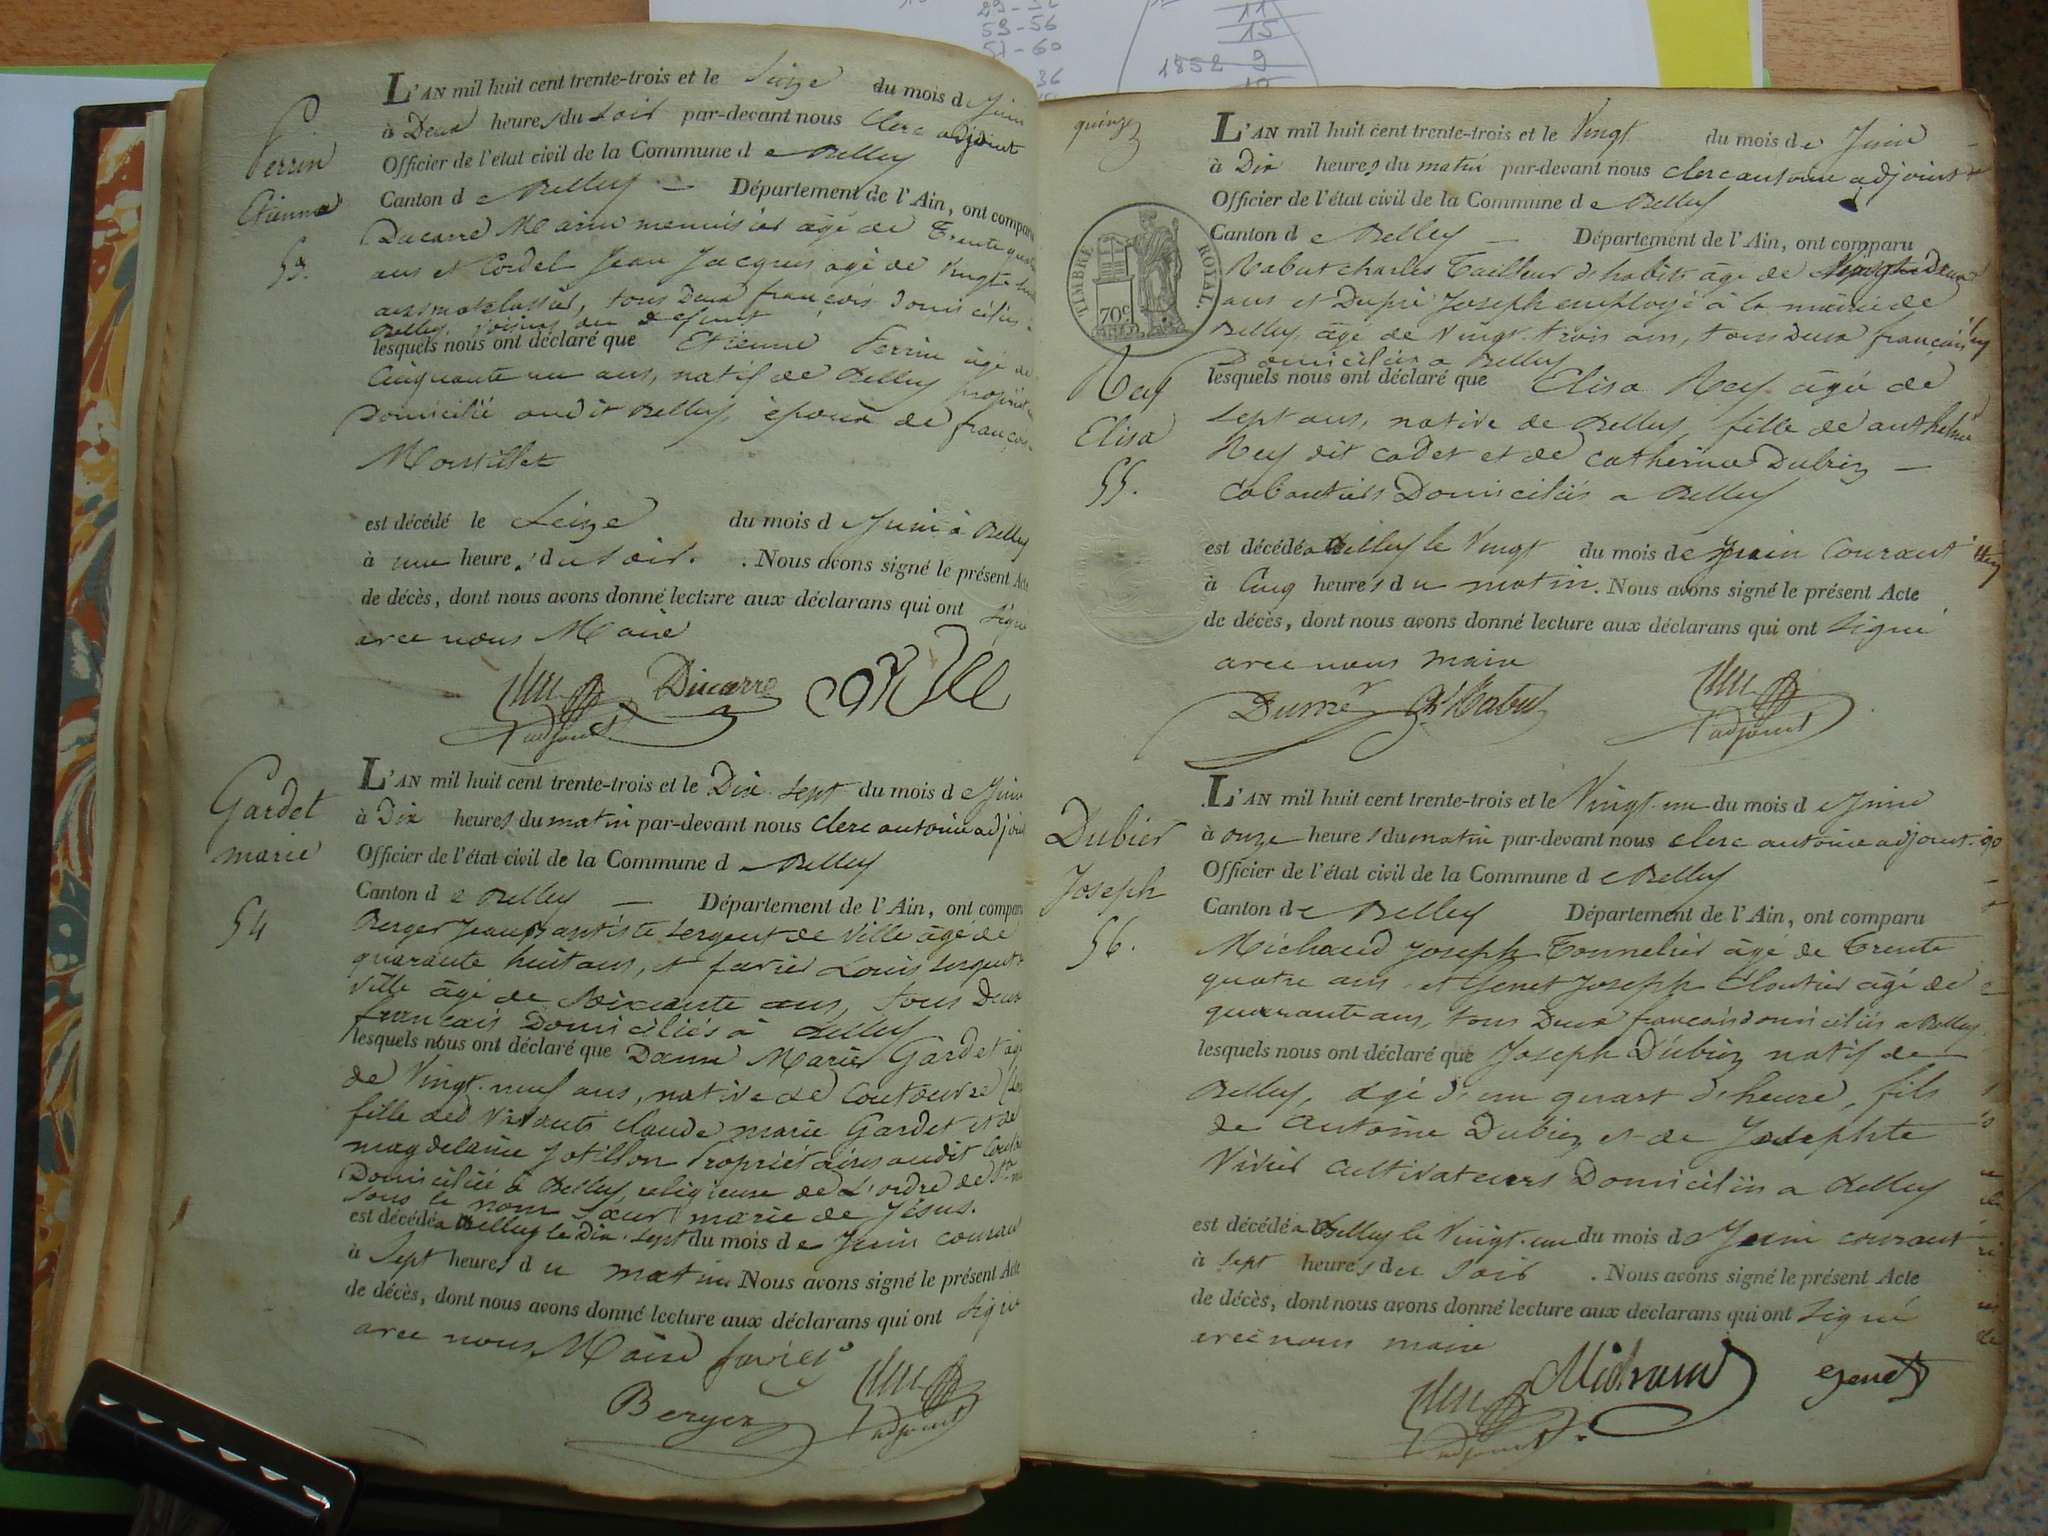 29-52
53-56
57-60
36
11
15
1852 9
10
P.
Perrin
Etienne
53.
L'AN mil huit cent trente-trois et le Seize du mois de Juin
à Deux heures du soir par-devant nous Clerc adjoint
Officier de l'état civil de la Commune de Belley
Canton de Belley — Département de l'Ain, ont comparu
Ducarre Marin menuisier âgé de Trente quatre
ans et Cordel Jean Jacques âgé de Vingt
ans matelassier, tous Deux françois Domiciliés
Belley, voisins du defunt
lesquels nous ont déclaré que Etienne Perrin âgé de
Cinquante un ans, natif de Belley propriét
Domicilié audit Belley, époux de françoise
est décédé le Seize du mois de Juin à Belley
à une heure, du soir. . Nous avons signé le présent Acte
de décès, dont nous avons donné lecture aux déclarans qui ont signé
avec nous Maire
Ducarre Cordel
adjoint
Gardet
marie
54
L'AN mil huit cent trente-trois et le Dix sept du mois de Juin
à Dix heures du matin par-devant nous Clerc antoine adjoint
Officier de l'état civil de la Commune de Belley
Canton de Belley — Département de l'Ain, ont comparu
Berger Jean Baptiste Sergent de Ville âgé de
quarante huit ans, et favier Louis Sergent de
Ville âgé de Soixante ans, tous Deux
français Domiciliés à Belley
lesquels nous ont déclaré que Dame Marie Gardet âgée
de Vingt-neuf ans, native de Coutouvre
fille des vivants Claude marie Gardet et de
magdelaine Jotillon Propriétaires audit
Domiciliée à Belley, religieuse de L'ordre de St
sous le nom Sœur marie de Jésus.
est décédé a Belley le Dix-sept du mois de Juin courant
à Sept heures du matin Nous avons signé le présent Acte
de décès, dont nous avons donné lecture aux déclarans qui ont signé
avec nous Maire favier
Berger adjoint
quinze
TIMBRE ROYAL.
70c
Rey
Elisa
55.
L'AN mil huit cent trente-trois et le Vingt du mois de Juin
à Dix heures du matin par-devant nous Clerc antoine adjoint
Officier de l'état civil de la Commune de Belley
Canton de Belley — Département de l'Ain, ont comparu
Rabut Charles Tailleur d'habits âgé de
ans et Dupré Joseph employé à la mairie de
Belley, âgé de Vingt trois ans, tous Deux français
Domiciliés a Belley
lesquels nous ont déclaré que Elisa Rey âgée de
sept ans, native de Belley, fille de anthelme
Rey dit Cadet et de Catherine Dubiez —
Cabaretiers Domiciliés a Belley
est décédé a Belley le Vingt du mois de Juin Courant
à Cinq heures du matin. Nous avons signé le présent Acte
de décès, dont nous avons donné lecture aux déclarans qui ont signé
avec nous maire
Dupré Ch Rabut
adjoint
Dubiez
Joseph
56.
L'AN mil huit cent trente-trois et le Vingt-un du mois de Juin
à onze heures du matin par-devant nous Clerc antoine adjoint
Officier de l'état civil de la Commune de Belley
Canton de Belley Département de l'Ain, ont comparu
Michaud Joseph Tonnelier âgé de Trente
quatre ans et Genet Joseph Cloutier âgé de
quarante ans, tous Deux français domiciliés a Belley
lesquels nous ont déclaré que Joseph Dubiez natif de
Belley, âgé d'un quart d'heure, fils
de Antoine Dubiez et de Josephte
Vivier Cultivateurs Domiciliés a Belley
est décédé a Belley le Vingt-un du mois de Juin courant
à sept heures du soir . Nous avons signé le présent Acte
de décès, dont nous avons donné lecture aux déclarans qui ont signé
avec nous maire
Michaud genet
adjoint